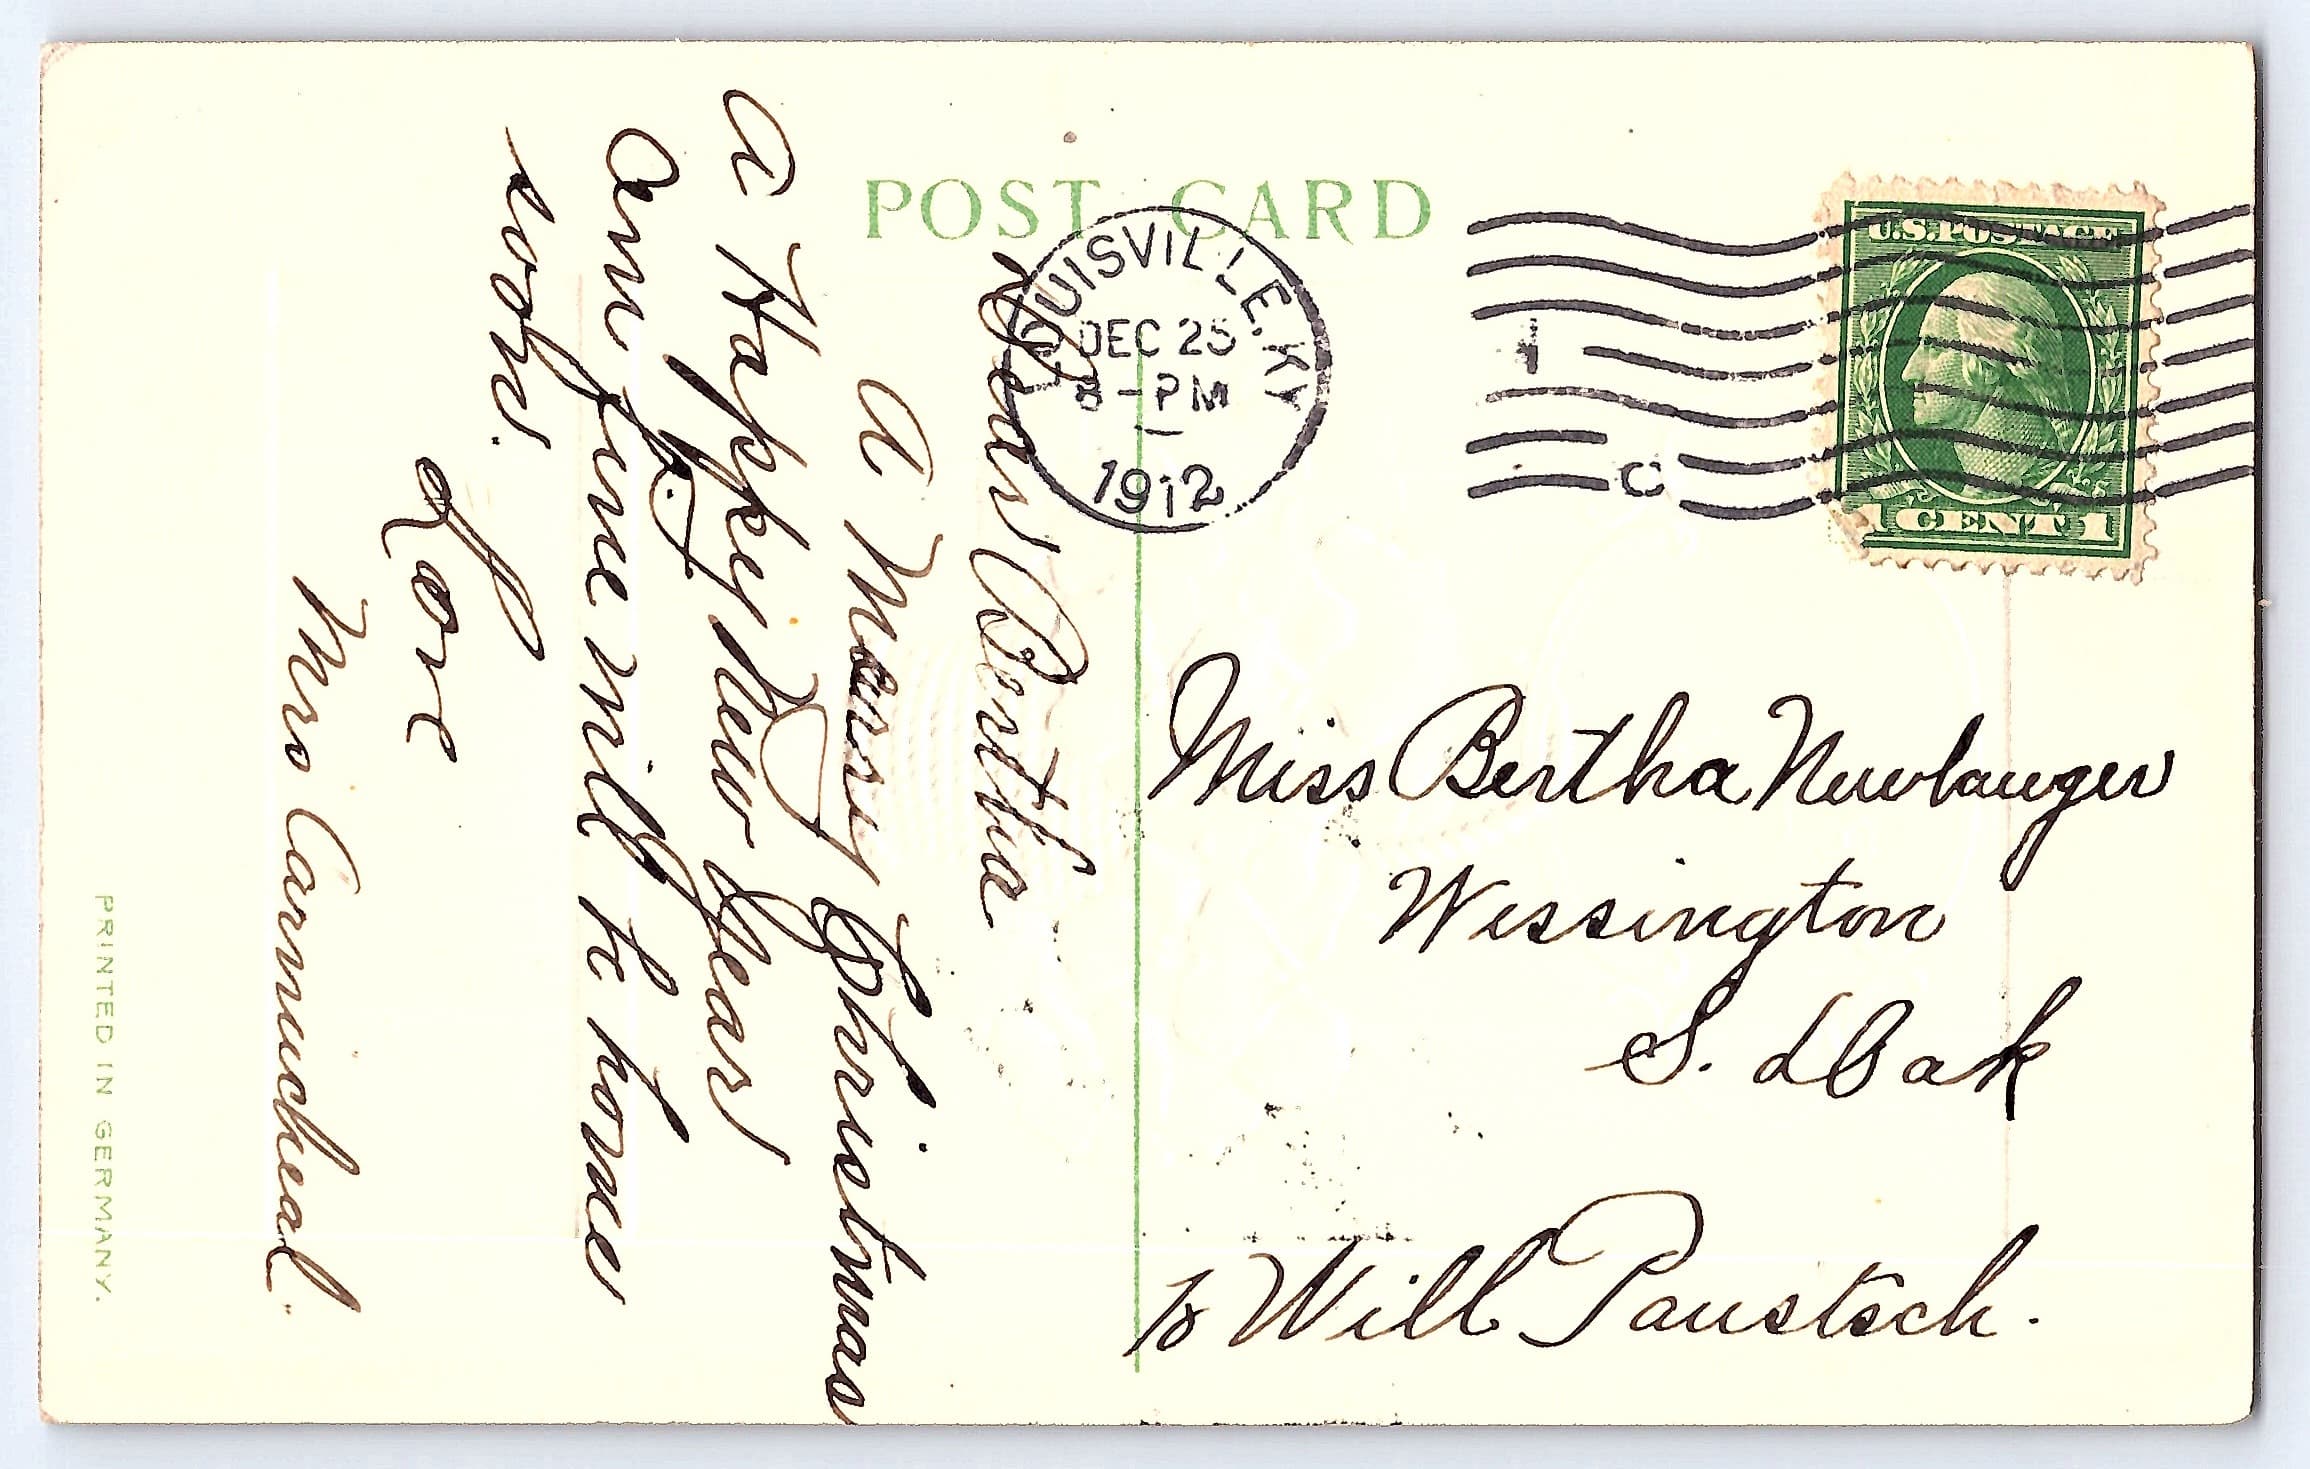 POST CARD
LOUISVILLE. KY
DEC 25
8 - PM
1912
C
U.S. POSTAGE
1 CENT 1
Dear Bertha
A Merry Christmas
A Happy New Year
Am fine will be home
soon.
Love
Mrs Carmicheal.
Miss Bertha Newbauger
Wessington
S. Dak
% Will Paustsch.
PRINTED IN GERMANY.